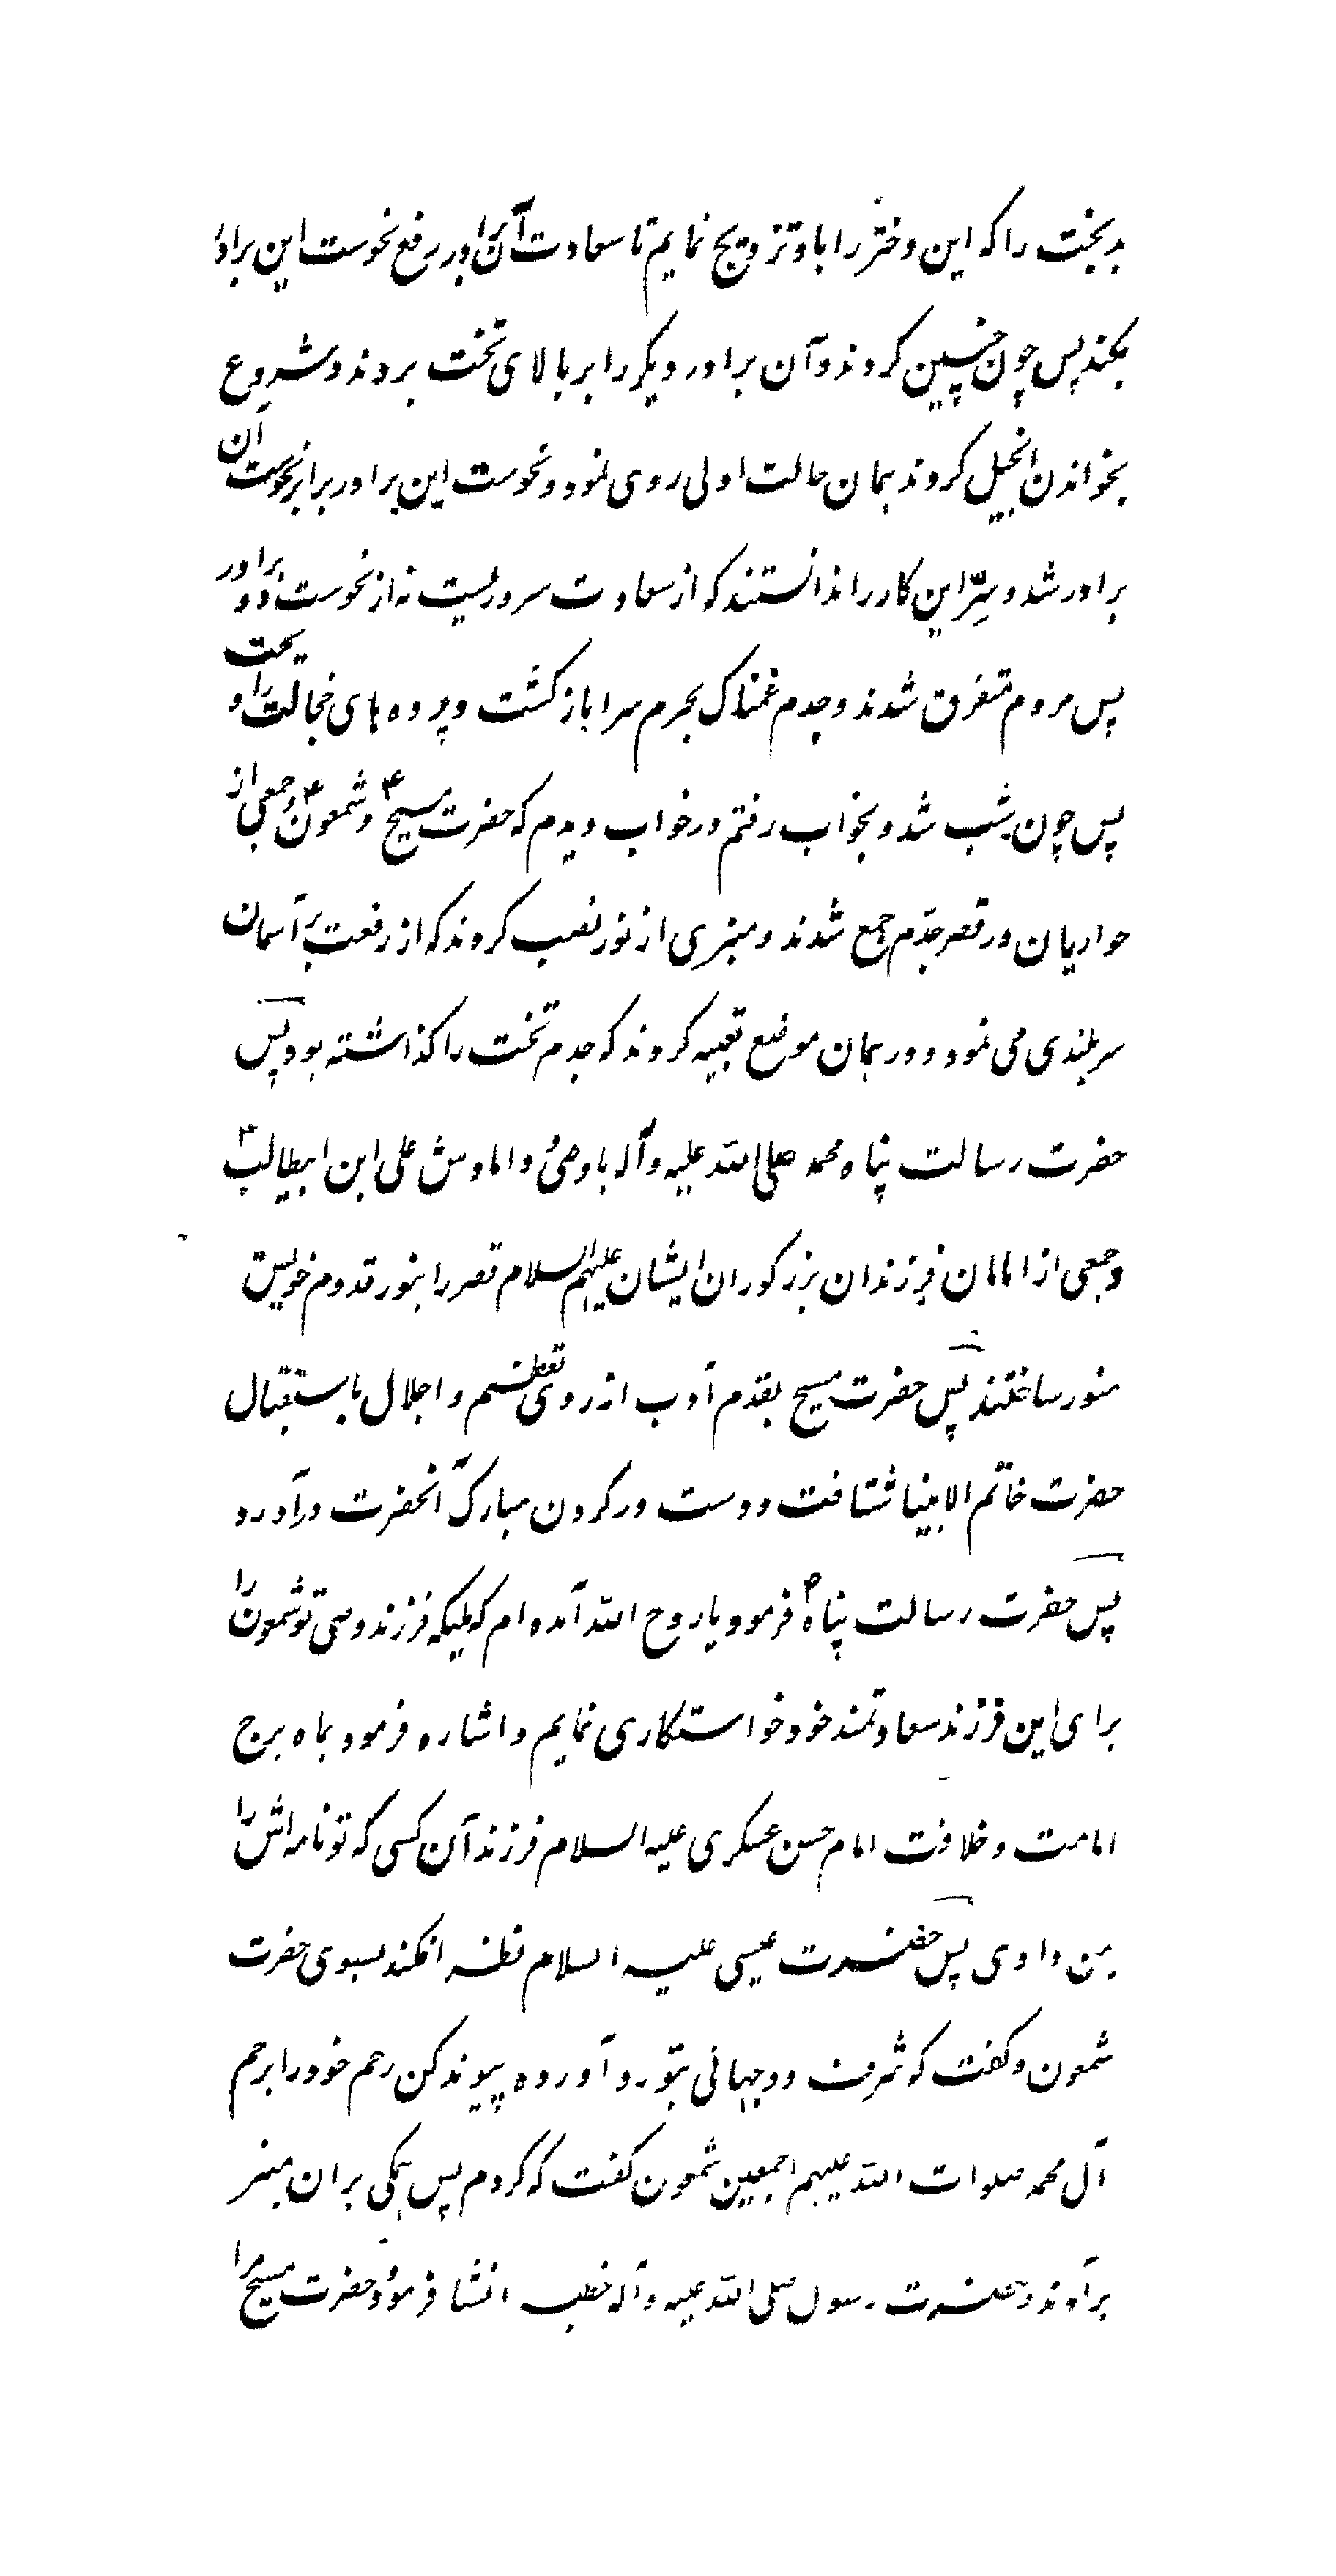 بدبخت را که این دختر را باو تزویج نمایم تا سعادت آن برادر رفع نحوست این برادر
بکند پس چون چنین کردند و آن برادر دیگر را بر بالای تخت بردند و شروع
بخواندن انجیل کردند همان حالت اولی روی نمود و نحوست این برادر برابر نحوست آن
برادر شد و سرّ این کار را ندانستند که از سعادت سروریست نه از نحوست دو برادر
پس مردم متفرق شدند و جدم غمناک بحرم سرا بازگشت و پرده های خجالت را
پس چون شب شد و بخواب رفتم در خواب دیدم که حضرت مسیح ع و شمعون ع و جمعی از
حواریان در قصر جدّم جمع شدند و منبری از نور نصب کردند که از رفعت بر آسمان
سربلندی می نمود و در همان موضع تعبیه کردند که جدم تخت را گذاشته بود پس
حضرت رسالت پناه محمد صلی الله علیه و آله با وصی و دامادش علی ابن ابیطالب ع
و جمعی از امامان فرزندان بزرگوران ایشان علیهم السلام قصر را بنور قدوم خویش
منور ساختند پس حضرت مسیح بقدم ادب از روی تعظیم و اجلال باستقبال
حضرت خاتم الانبیا شتافت و دست در گردن مبارک آنحضرت درآورد
پس حضرت رسالت پناه ص فرمود یا روح الله آمده ام که ملیکه فرزند وصی تو شمعون را
برای این فرزند سعادتمند خود خواستکاری نمایم و اشاره فرمود بماه برج
امامت و خلافت امام حسن عسکری علیه السلام فرزند آن کسی که تو نامه اش را
بمن دادی پس حضرت عیسی علیه السلام نظر افکند بسوی حضرت
شمعون و گفت که شرف دوجهانی بتو رو آورده پیوند کن رحم خود را برحم
آل محمد صلوات الله علیهم اجمعین شمعون گفت که کردم پس همگی بران منبر
برآمدند و حضرت رسول صلی الله علیه و آله خطبه انشا فرمود و حضرت مسیح مرا